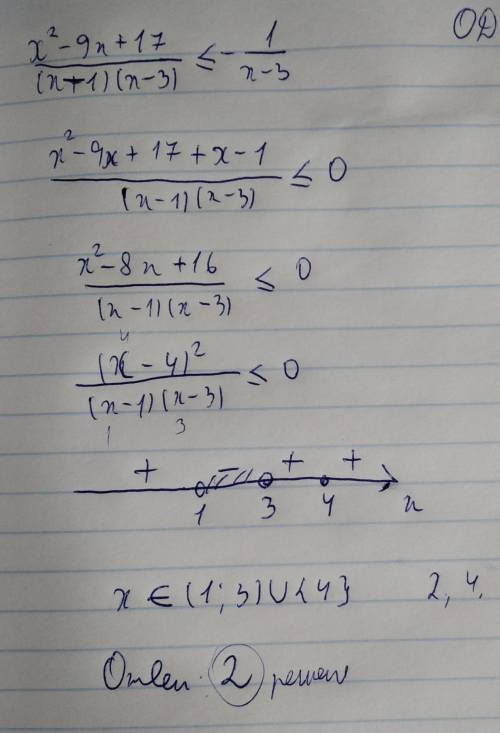 ОД
(x² - 9x + 17) / ((x - 1)(x - 3)) ≤ - 1 / (x - 3)
(x² - 9x + 17 + x - 1) / ((x - 1)(x - 3)) ≤ 0
(x² - 8x + 16) / ((x - 1)(x - 3)) ≤ 0
4
(x - 4)² / ((x - 1)(x - 3)) ≤ 0
1 3
+ - + +
1 3 4 x
x ∈ (1; 3) ∪ {4} 2, 4.
Ответ: 2 решен